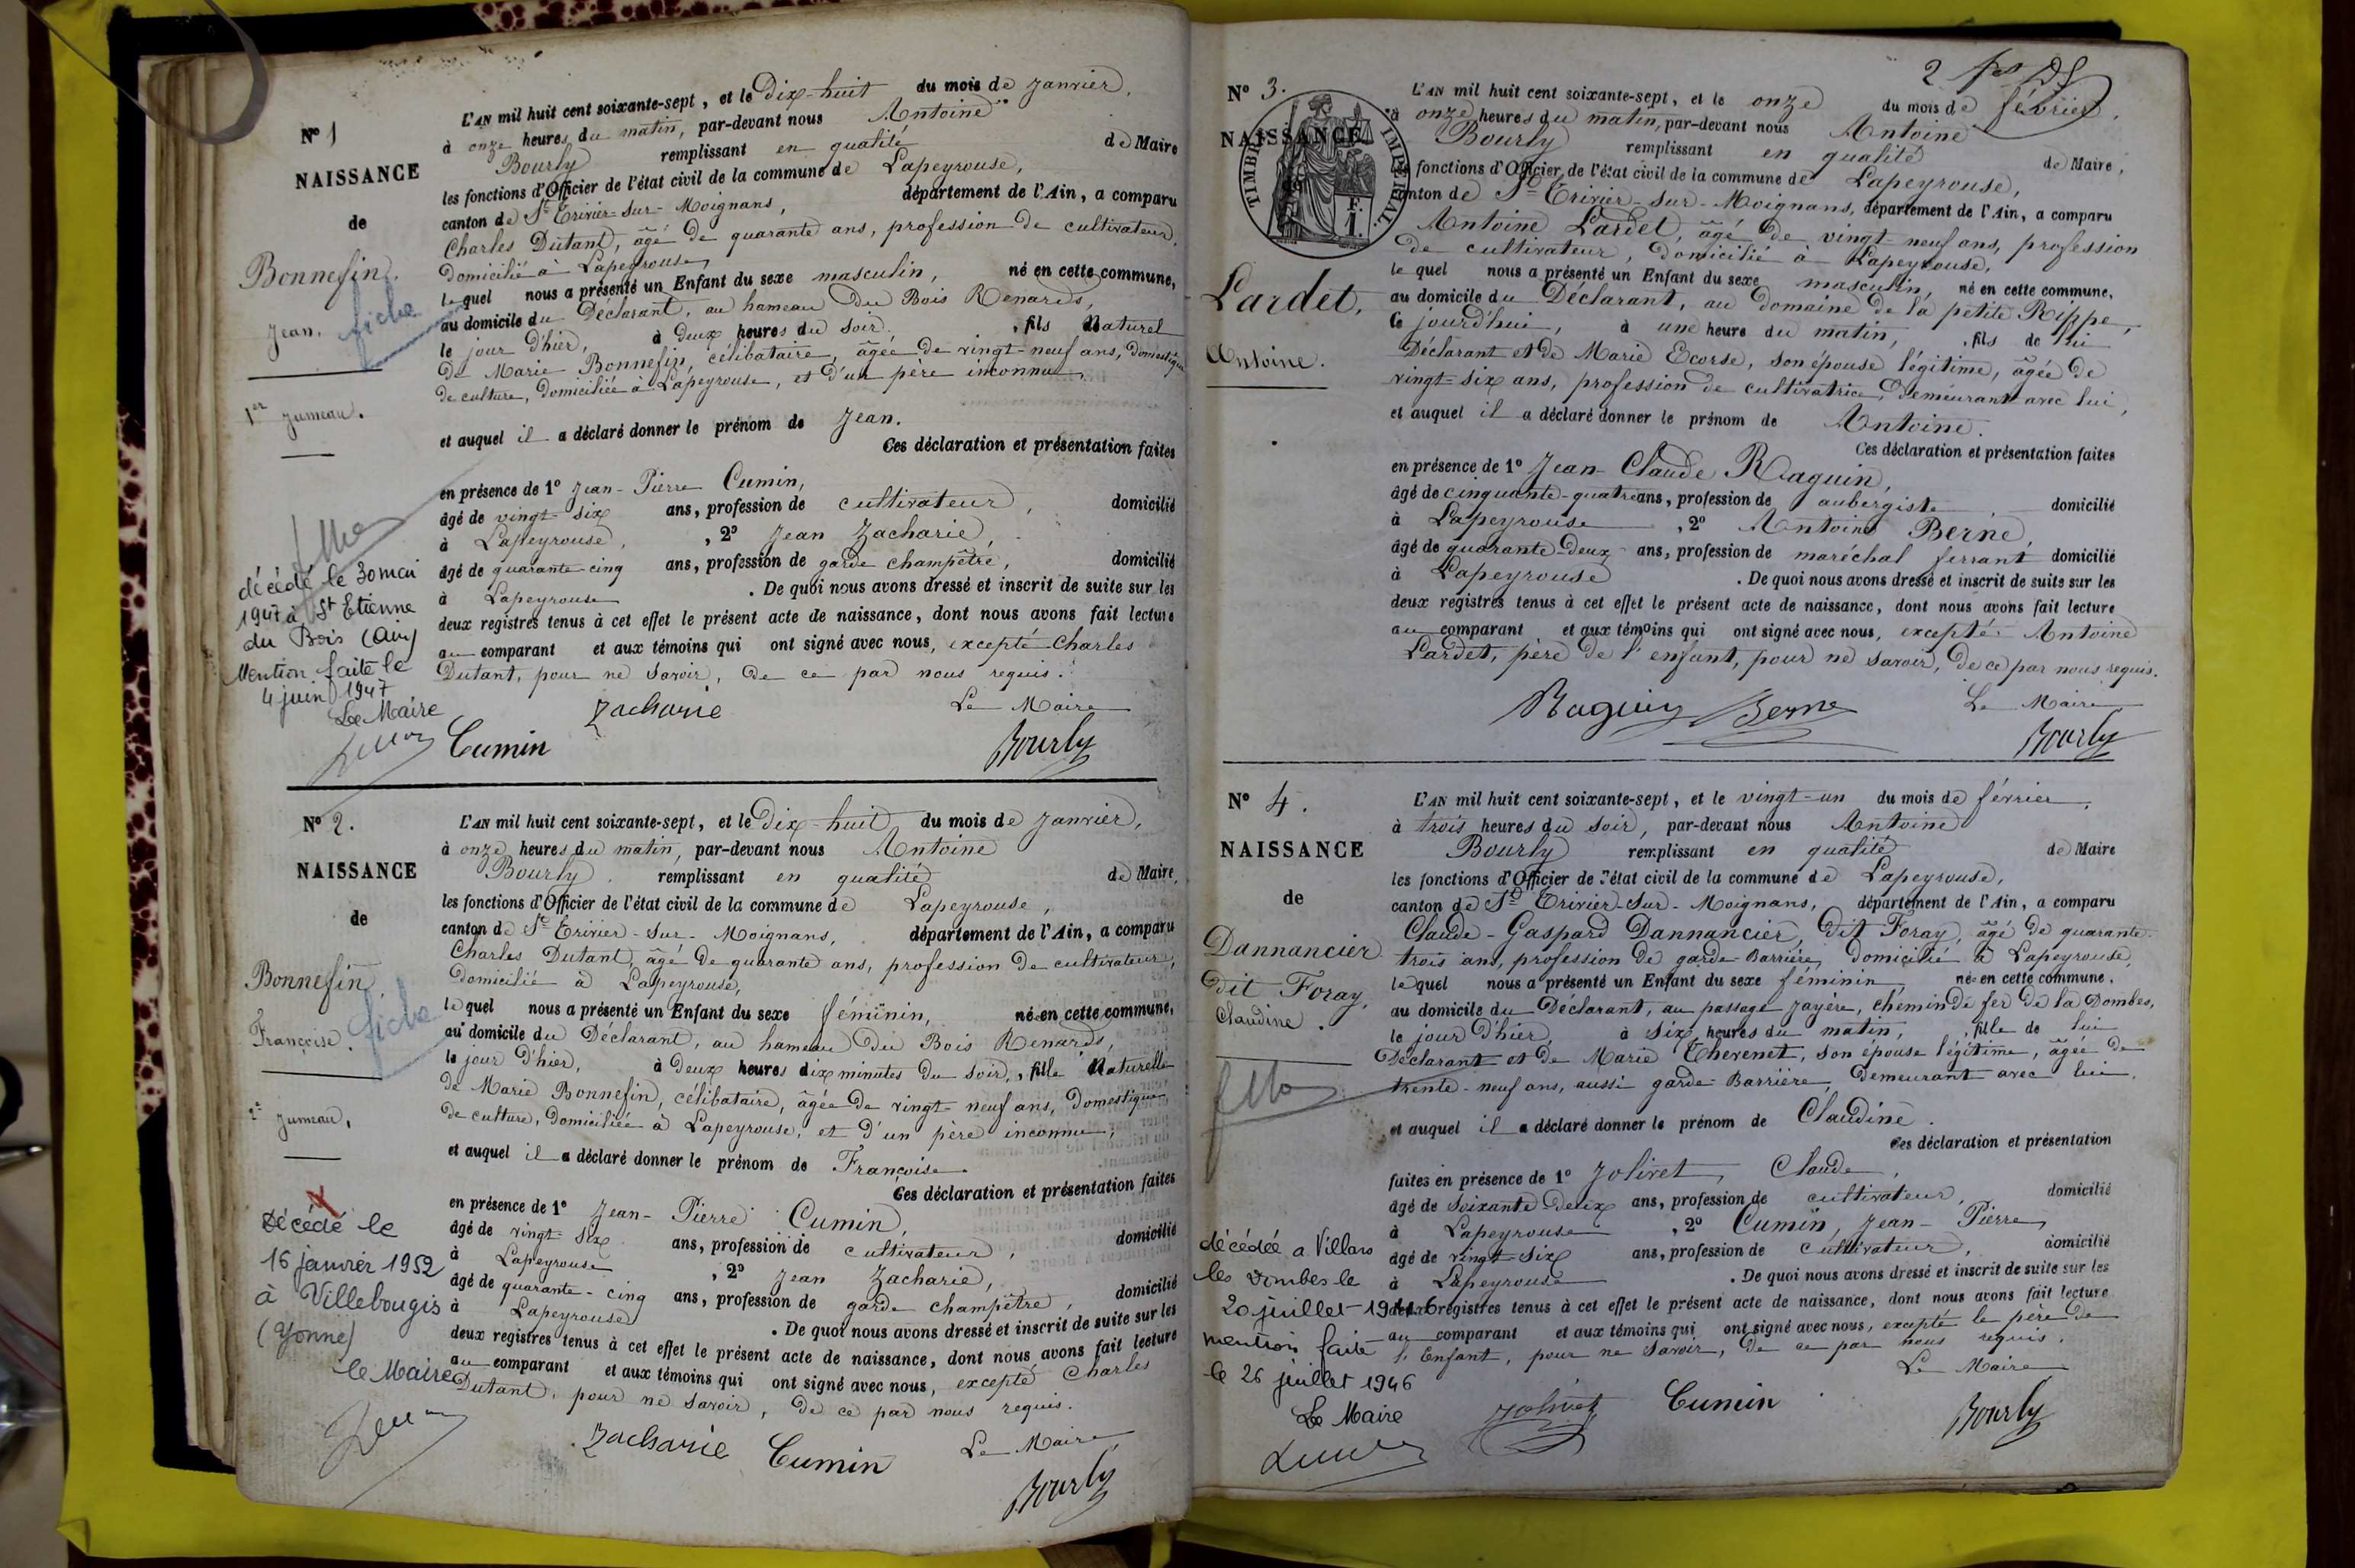 N° 1
NAISSANCE
de
Bonnefin.
Jean. fiche
1er Jumeau.
décédé le 30 mai
1947 à St Etienne
du Bois (Ain)
Mention faite le
4 juin 1947
Le Maire
L'AN mil huit cent soixante-sept, et le Dix-huit du mois de Janvier,
à onze heures du matin, par-devant nous Antoine
Bourly remplissant en qualité de Maire
les fonctions d'Officier de l'état civil de la commune de Lapeyrouse,
canton de St Trivier-sur-Moignans, département de l'Ain, a comparu
Charles Dutant, âgé de quarante ans, profession de cultivateur,
domicilié à Lapeyrouse,
lequel nous a présenté un Enfant du sexe masculin, né en cette commune,
au domicile du Déclarant, au hameau du Bois Renards,
le jour d'hier, à deux heures du soir, fils Naturel
de Marie Bonnefin, célibataire, âgée de vingt-neuf ans, domestique
de culture, domiciliée à Lapeyrouse, et d'un père inconnu,
et auquel il a déclaré donner le prénom de Jean.
Ces déclaration et présentation faites
en présence de 1° Jean-Pierre Cumin,
âgé de vingt-six ans, profession de cultivateur, domicilié
à Lapeyrouse, , 2° Jean Zacharie,
âgé de quarante-cinq ans, profession de garde champêtre, domicilié
à Lapeyrouse . De quoi nous avons dressé et inscrit de suite sur les
deux registres tenus à cet effet le présent acte de naissance, dont nous avons fait lecture
au comparant et aux témoins qui ont signé avec nous, excepté Charles
Dutant, pour ne savoir, de ce par nous requis.
Zacharie Le Maire
Cumin Bourly
N° 2.
NAISSANCE
de
Bonnefin,
Françoise. fiche
2e Jumeau.
Décédé le
16 janvier 1952
à Villebougis
(Yonne)
le Maire
L'AN mil huit cent soixante-sept, et le Dix-huit du mois de Janvier,
à onze heures du matin, par-devant nous Antoine
Bourly remplissant en qualité de Maire,
les fonctions d'Officier de l'état civil de la commune de Lapeyrouse,
canton de St Trivier-sur-Moignans, département de l'Ain, a comparu
Charles Dutant, âgé de quarante ans, profession de cultivateur,
domicilié à Lapeyrouse,
lequel nous a présenté un Enfant du sexe féminin, née en cette commune,
au domicile du Déclarant, au hameau du Bois Renards,
le jour d'hier, à deux heures dix minutes du soir, , fille Naturelle
de Marie Bonnefin, célibataire, âgée de vingt-neuf ans, domestique
de culture, domiciliée à Lapeyrouse, et d'un père inconnu,
et auquel il a déclaré donner le prénom de Françoise.
Ces déclaration et présentation faites
en présence de 1° Jean-Pierre Cumin,
âgé de vingt-six ans, profession de cultivateur, domicilié
à Lapeyrouse , 2° Jean Zacharie,
âgé de quarante-cinq ans, profession de garde champêtre, domicilié
à Lapeyrouse . De quoi nous avons dressé et inscrit de suite sur les
deux registres tenus à cet effet le présent acte de naissance, dont nous avons fait lecture
au comparant et aux témoins qui ont signé avec nous, excepté Charles
Dutant, pour ne savoir, de ce par nous requis.
Zacharie Cumin Le Maire,
Bourly
2
N° 3.
NAISSANCE
TIMBRE IMPERIAL
F.
1.
Lardet,
Antoine.
L'AN mil huit cent soixante-sept, et le onze du mois de février,
à onze heures du matin, par-devant nous Antoine
Bourly remplissant en qualité de Maire,
fonctions d'Officier de l'état civil de la commune de Lapeyrouse,
canton de St Trivier-sur-Moignans, département de l'Ain, a comparu
Antoine Lardet, âgé de vingt-neuf ans, profession
de cultivateur, domicilié à Lapeyrouse,
lequel nous a présenté un Enfant du sexe masculin, né en cette commune,
au domicile du Déclarant, au domaine de la petite Rippe,
ce jourd'hui, à une heure du matin, , fils de lui
Déclarant et de Marie Ecorse, son épouse légitime, âgée de
vingt-six ans, profession de cultivatrice, demeurant avec lui,
et auquel il a déclaré donner le prénom de Antoine.
Ces déclaration et présentation faites
en présence de 1° Jean-Claude Raguin,
âgé de cinquante-quatre ans, profession de aubergiste, domicilié
à Lapeyrouse , 2° Antoine Berne,
âgé de quarante-deux ans, profession de maréchal ferrant domicilié
à Lapeyrouse . De quoi nous avons dressé et inscrit de suite sur les
deux registres tenus à cet effet le présent acte de naissance, dont nous avons fait lecture
au comparant et aux témoins qui ont signé avec nous, excepté Antoine
Lardet, père de l'enfant, pour ne savoir, de ce par nous requis.
Raguin Berne Le Maire
Bourly
N° 4.
NAISSANCE
de
Dannancier
dit Foray,
Claudine.
décédée a Villars
les Dombes le
20 juillet 1946
mention faite
le 26 juillet 1946
Le Maire
L'AN mil huit cent soixante-sept, et le vingt-un du mois de février,
à trois heures du soir, par-devant nous Antoine
Bourly remplissant en qualité de Maire
les fonctions d'Officier de l'état civil de la commune de Lapeyrouse,
canton de St Trivier-sur-Moignans, département de l'Ain, a comparu
Claude-Gaspard Dannancier, dit Foray, âgé de quarante-
trois ans, profession de garde-Barrière, domicilié à Lapeyrouse,
lequel nous a présenté un Enfant du sexe féminin, née en cette commune,
au domicile du Déclarant, au passage Jayère, chemin de fer de la Dombes,
le jour d'hier, à six heures du matin, , fille de lui
Déclarant et de Marie Thevenet, son épouse légitime, âgée de
trente-neuf ans, aussi garde-Barrière, demeurant avec lui,
et auquel il a déclaré donner le prénom de Claudine.
Ces déclaration et présentation
faites en présence de 1° Jolivet, Claude,
âgé de soixante-deux ans, profession de cultivateur, domicilié
à Lapeyrouse , 2° Cumin, Jean-Pierre,
âgé de vingt-six ans, profession de cultivateur, domicilié
à Lapeyrouse . De quoi nous avons dressé et inscrit de suite sur les
deux registres tenus à cet effet le présent acte de naissance, dont nous avons fait lecture
au comparant et aux témoins qui ont signé avec nous, excepté le père de
l'Enfant, pour ne savoir, de ce par nous requis.
Le Maire
Jolivet Cumin Bourly